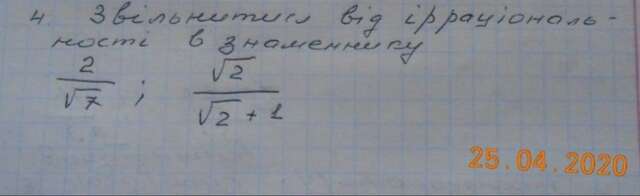 4. Звільнитися від ірраціональ-
ності в знаменнику
2/√7 ; √2/(√2 + 1)
25.04.2020